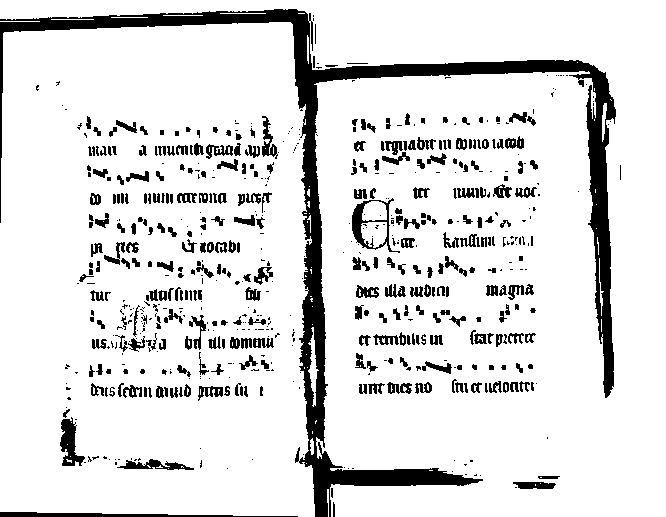 mari a invenisti gratiā apud
do mi num ecce conci pies et
pa ries Et vocabi
tur altissimi fili
us. V da bit illi dominus
deus sedem david patris su i
et regnabit in domo iacob
in e ter num. Et voc
Ecce karissimi
dies illa iudicii magna
et terribilis in stat preterе
unt dies no stri et velociter